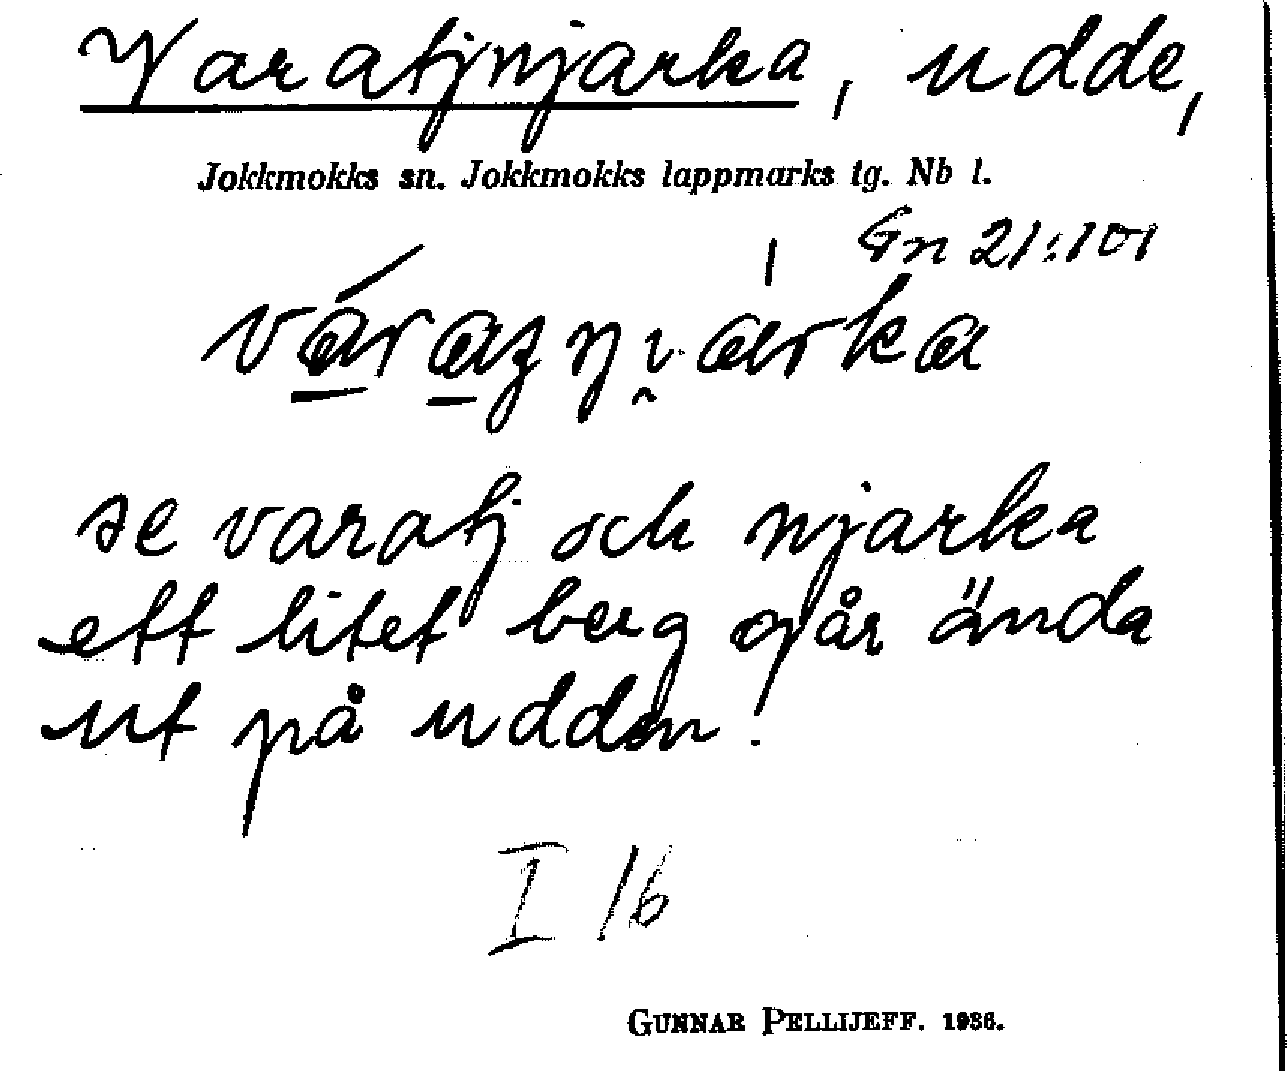 Varatjnjarka, udde,
Jokkmokks sn. Jokkmokks lappmarks tg. Nb l.
Gn 21:101
se varatj och njarka
ett litet berg går ända
ut på udden!
I 16
GUNNAR PELLIJEFF. 1936.